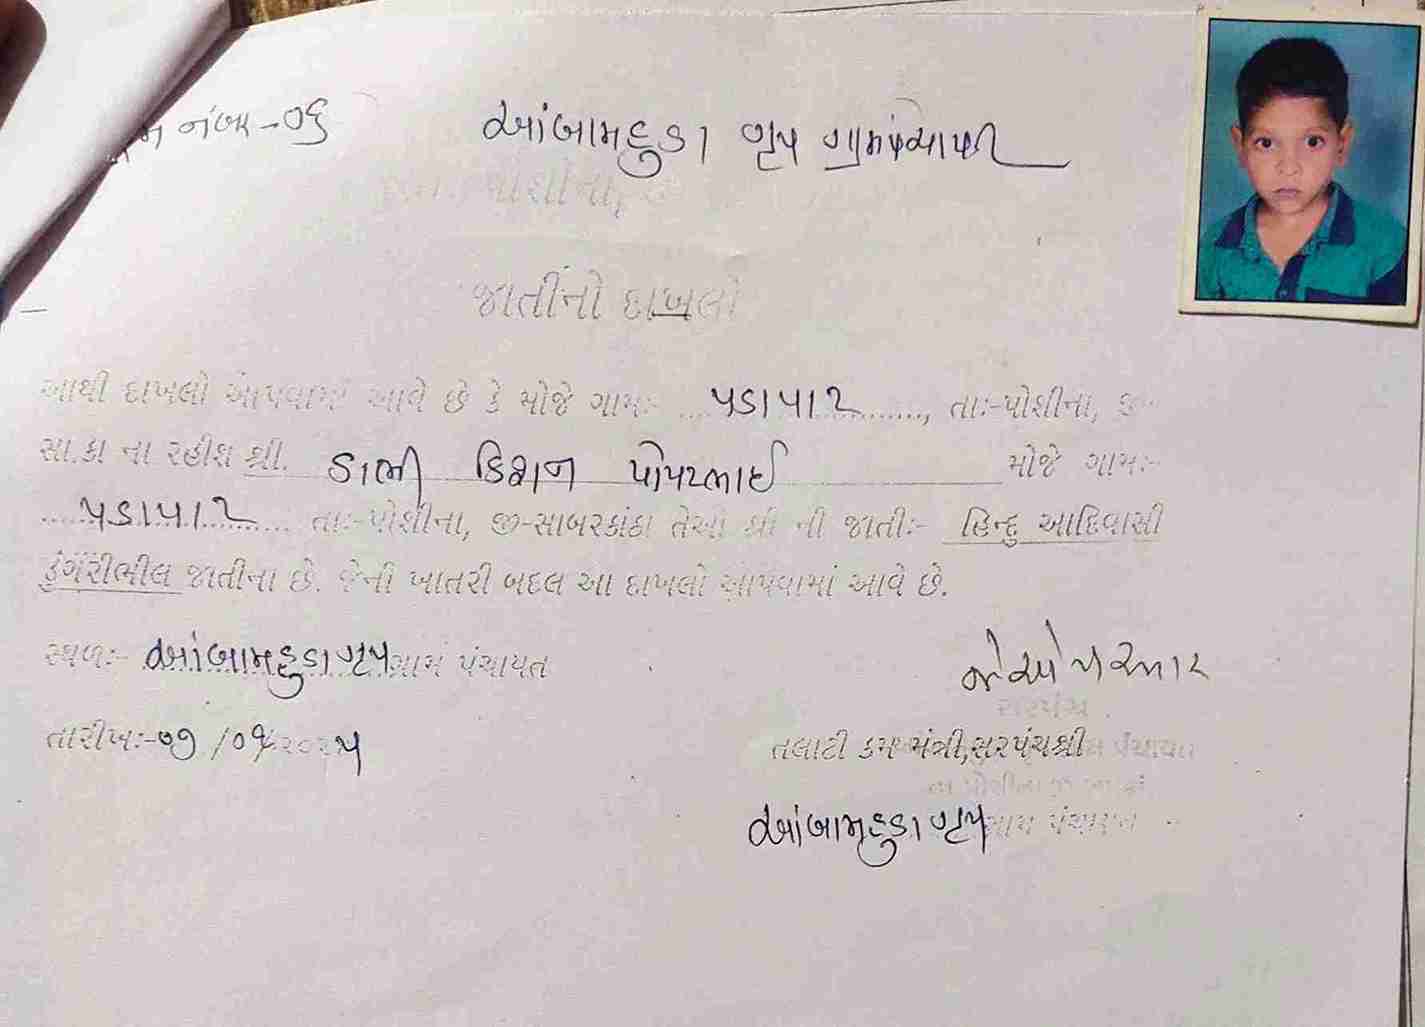 નંબર-૦૬
આંબામહુડા ગૃપ ગ્રામપંચાયત
પોશીના,
જાતીનો દાખલો
આથી દાખલો આપવામાં આવે છે કે મોજે ગામઃ- ....પડાપાટ............, તાઃ-પોશીના, જી-
સા.કાં ના રહીશ શ્રી. ડાભી કિશન પોપટભાઈ મોજે ગામઃ-
....પડાપાટ.... તાઃ-પોશીના, જી-સાબરકાંઠા તેઓ શ્રી ની જાતીઃ- હિન્દુ આદિવાસી
ડુંગરીભીલ જાતીના છે. જેની ખાતરી બદલ આ દાખલો આપવામાં આવે છે.
સ્થળઃ- આંબામહુડા ગૃપ ગ્રામ પંચાયત
તારીખઃ-૦૭/૦૧/૨૦૨૫
સરપંચ
તલાટી કમ મંત્રી,સરપંચશ્રી
આંબામહુડા ગૃપ ગ્રામ પંચાયત